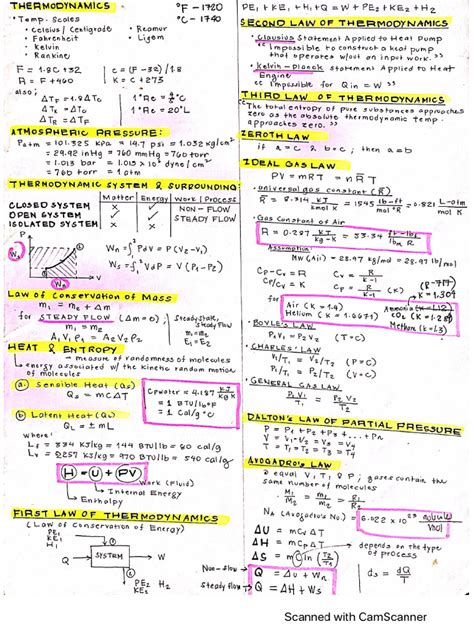 THERMODYNAMICS
°F - 1720
°C - 1740
• Temp. Scales
• Celsius / Centigrade • Reamur
• Fahrenheit • Ligem
• Kelvin
• Rankine
F = 1.8C + 32 C = (F - 32) / 1.8
R = F + 460 K = C + 273
also;
ATMOSPHERIC PRESSURE:
Patm = 101.325 KPa = 14.7 psi = 1.032 kg/cm²
= 29.92 in Hg = 760 mmHg = 760 torr
= 1.013 bar = 1.013 x 10⁶ dyne / cm²
THERMODYNAMIC SYSTEM & SURROUNDING
Matter Energy Work / Process
CLOSED SYSTEM NON-FLOW
OPEN SYSTEM STEADY FLOW
ISOLATED SYSTEM
P
V
Wn = ∫ PdV = P (V2 - V1)
Ws = ∫ VdP = V (P1 - P2)
Law of Conservation of Mass
m1 = m2 + Δm
for STEADY FLOW (Δm = 0);
Steady State, Steady Flow
m1 = m2
E1 = E2
A1V1ρ1 = A2V2ρ2
HEAT & ENTROPY
= measure of randomness of molecules
energy associated w/ the kinetic random motion of molecules
a. Sensible Heat (Qs)
Qs = mCΔT
Cpwater = 4.187 KJ / kg K
= 1 BTU / lb°F
= 1 Cal / g°C
b. Latent Heat (QL)
QL = ± mL
where:
Lf = 334 KJ/kg = 144 BTU/lb = 80 cal/g
Lv = 2257 KJ/kg = 970 BTU/lb = 540 cal/g
H = U + PV
Work (Fluid)
Internal Energy
Enthalpy
FIRST LAW OF THERMODYNAMICS
(Law of Conservation of Energy)
PE1
KE1
H1
Q
SYSTEM
W
PE2
KE2 H2
PE1 + KE1 + H1 + Q = W + PE2 + KE2 + H2
SECOND LAW OF THERMODYNAMICS
• Clausius Statement Applied to Heat Pump
"Impossible to construct a heat pump
that operates w/out an input work."
• Kelvin - Planck statement Applied to Heat
Engine
"Impossible for Qin = W"
THIRD LAW OF THERMODYNAMICS
"The total entropy of pure substances approaches
zero as the absolute thermodynamic temp.
approaches zero."
ZEROTH LAW
if a = c & b = c ; then a = b
IDEAL GAS LAW
PV = mRT = nR̄T
• Universal gas constant (R̄)
• Gas Constant of Air
R = 0.287 KJ / kg-K = 53.34 ft-lbf / lbm R
Assumption:
MW (Air) = 28.97 kg/mol = 28.97 lb/mol
Cp - Cv = R
Cp/Cv = K
Cv = R / K-1
for
Air (K = 1.4)
Helium (K = 1.6671)
CO2 (K = 1.28)
Methane (K = 1.3)
• BOYLE'S LAW
P1V1 = P2V2 (T = C)
• CHARLES' LAW
V1/T1 = V2/T2 (P = C)
P1/T1 = P2/T2 (V = C)
• GENERAL GAS LAW
P1V1 / T1 = P2V2 / T2
DALTON'S LAW OF PARTIAL PRESSURE
P = P1 + P2 + P3 + ... + Pn
V = V1 = V2 = V3 = V4
T = T1 = T2 = T3 = T4
AVOGADRO'S LAW
2 equal V, T & P; gases contain the
same number of molecules
NA (Avogadro's No.)
ΔU = mCvΔT
ΔH = mCpΔT
depends on the type
of process
ds = dQ / T
Non-flow Q = Δu + Wn
Steady flow Q = ΔH + Ws
Scanned with CamScanner